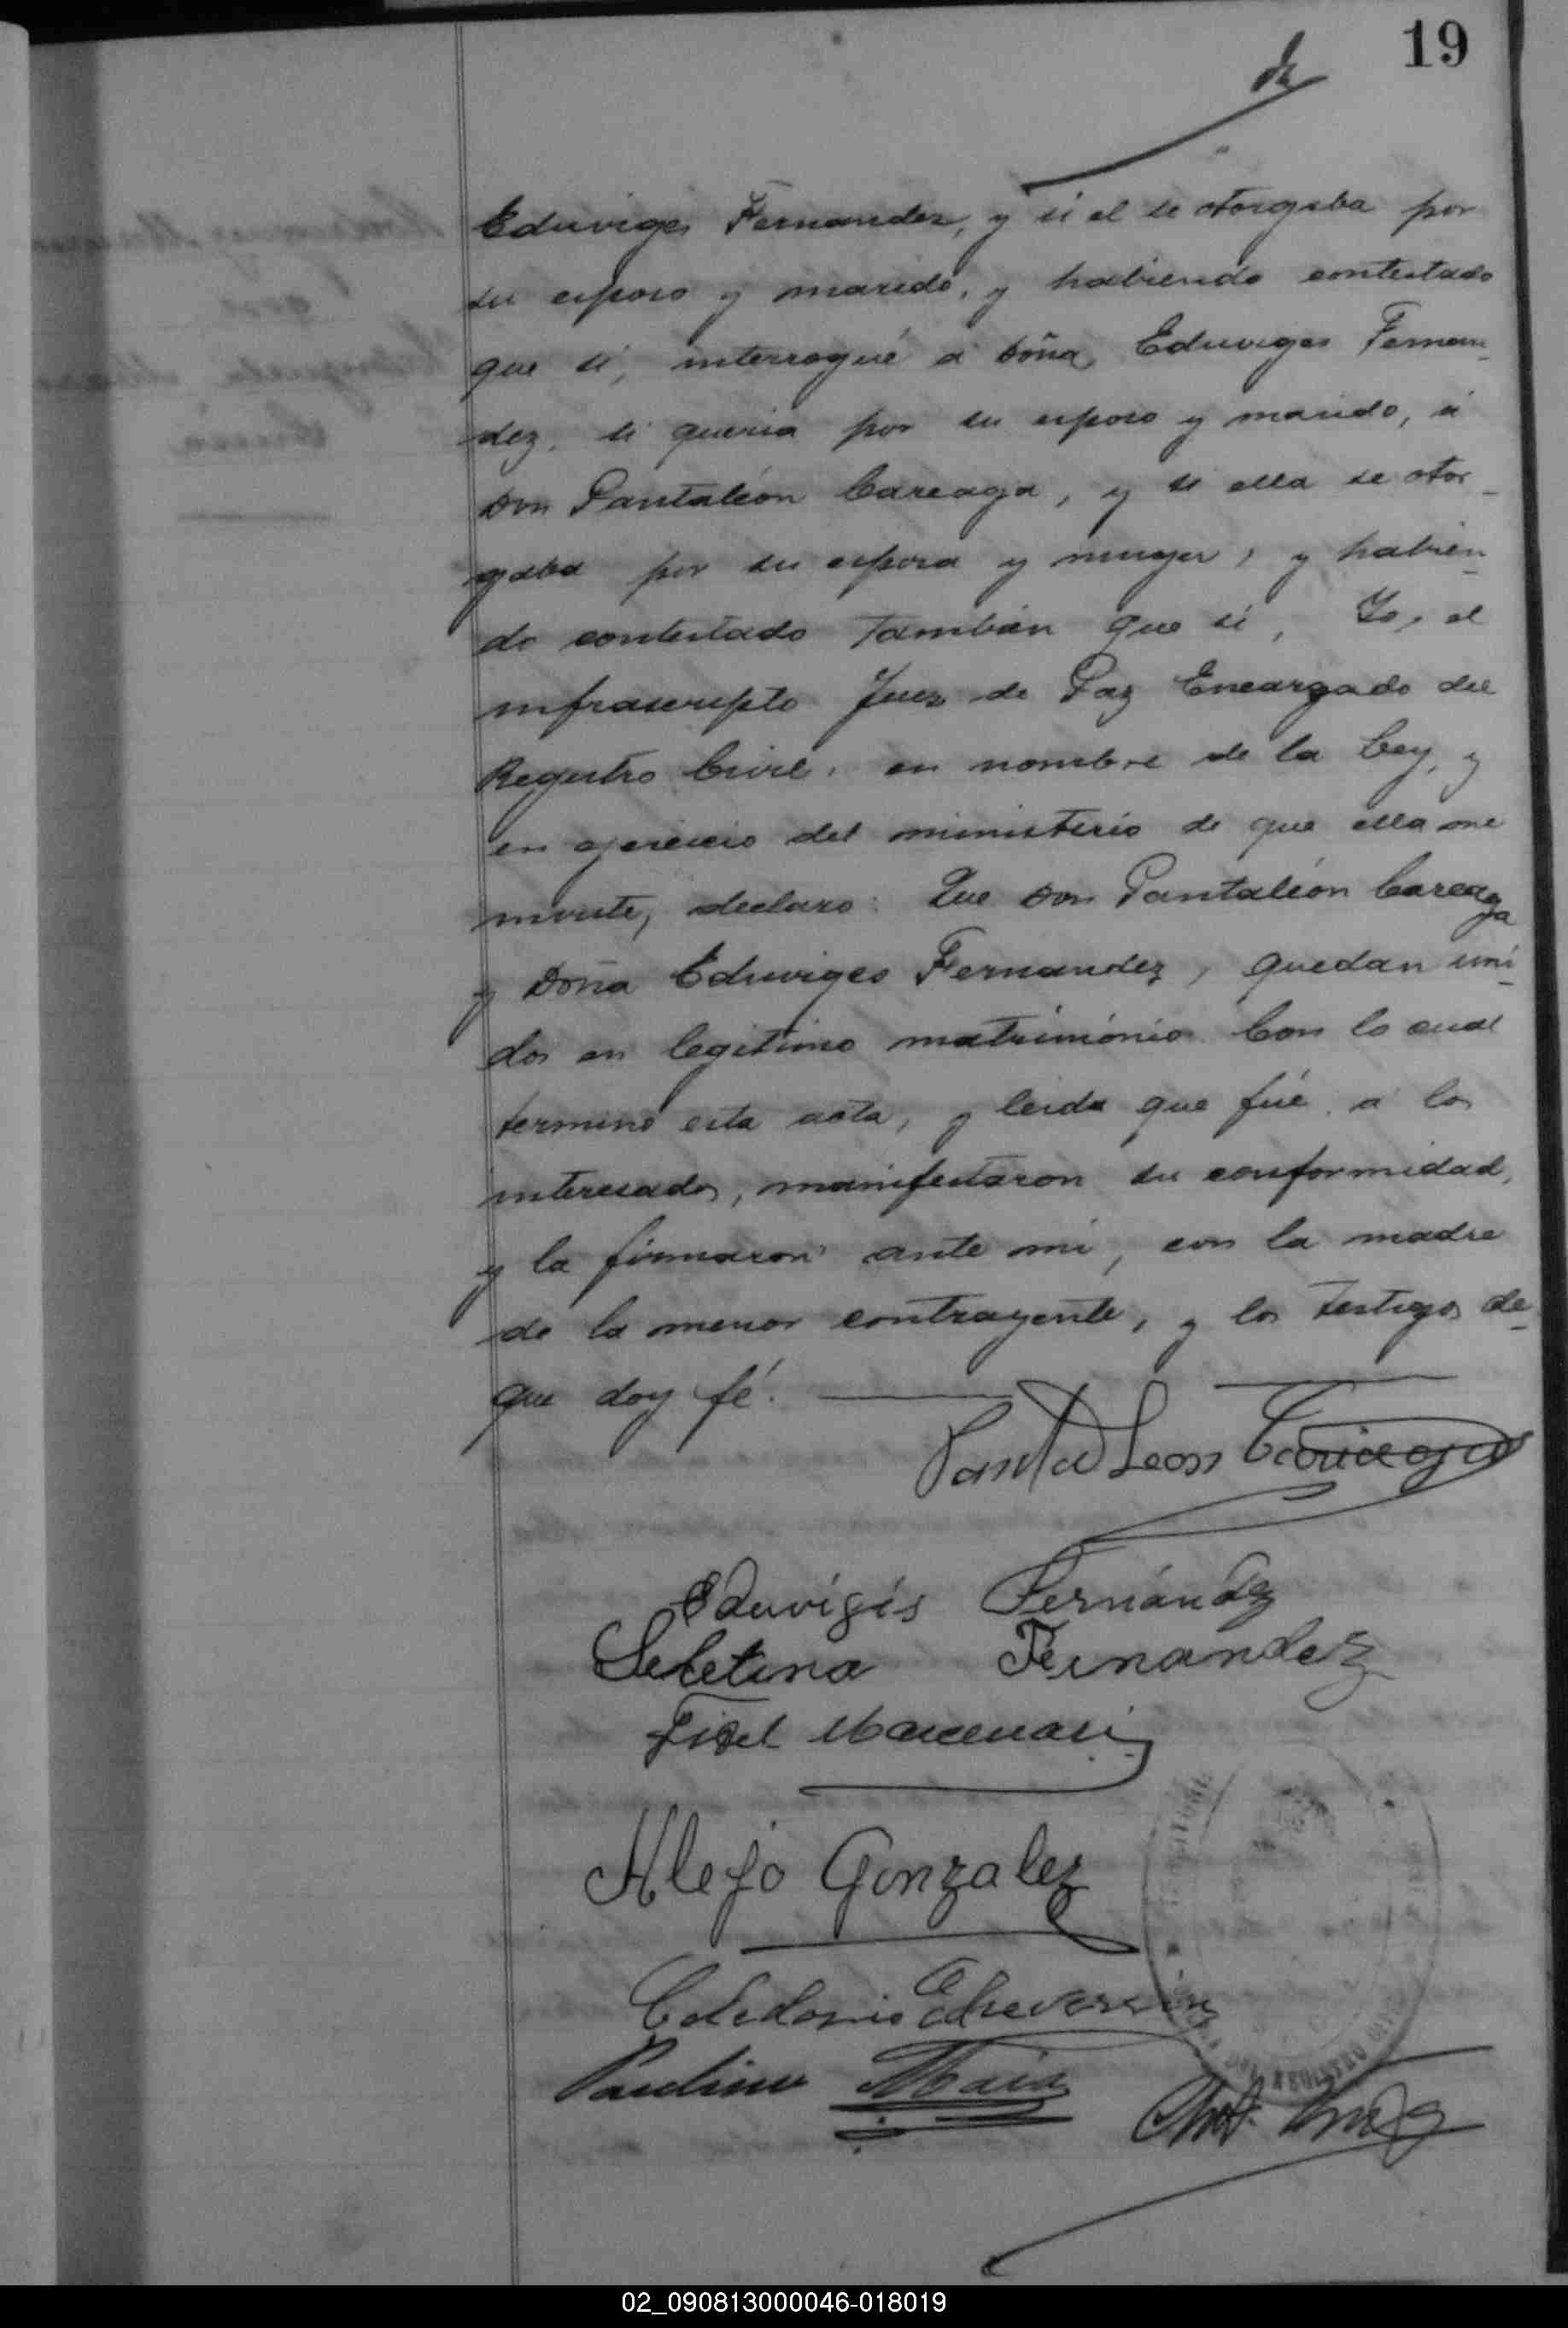 19
Eduviges Fernandez, y si el se otorgaba por
su esposo y marido, y habiendo contestado
que si, interrogué á Doña Eduviges Fernan-
dez, si queria por su esposo y marido, á
Don Pantaleón Careaga, y si ella se otor-
gaba por su esposa y muger, y habien-
do contestado también que si, Yo, el
infrascripto Juez de Paz Encargado del
Registro Civil, en nombre de la Ley, y
en ejercicio del ministerio de que ella me
inviste, declaro: Que Don Pantaleón Careaga
y Doña Eduviges Fernandez, quedan uni-
dos en legitimo matrimónio. Con lo cual
terminó esta acta, y leida que fué á los
interesados, manifestaron su conformidad,
y la firmaron ante mi, con la madre
de la menor contrayente, y los testigos de-
que doy fé.
Panta Leon Cariaga
Eduvigis Fernández
Seletina Fernandez
Fidel Marcenari
Alejo Gonzalez
Celedonio Echeverria
Paulino
REGISTRO
02_090813000046-018019